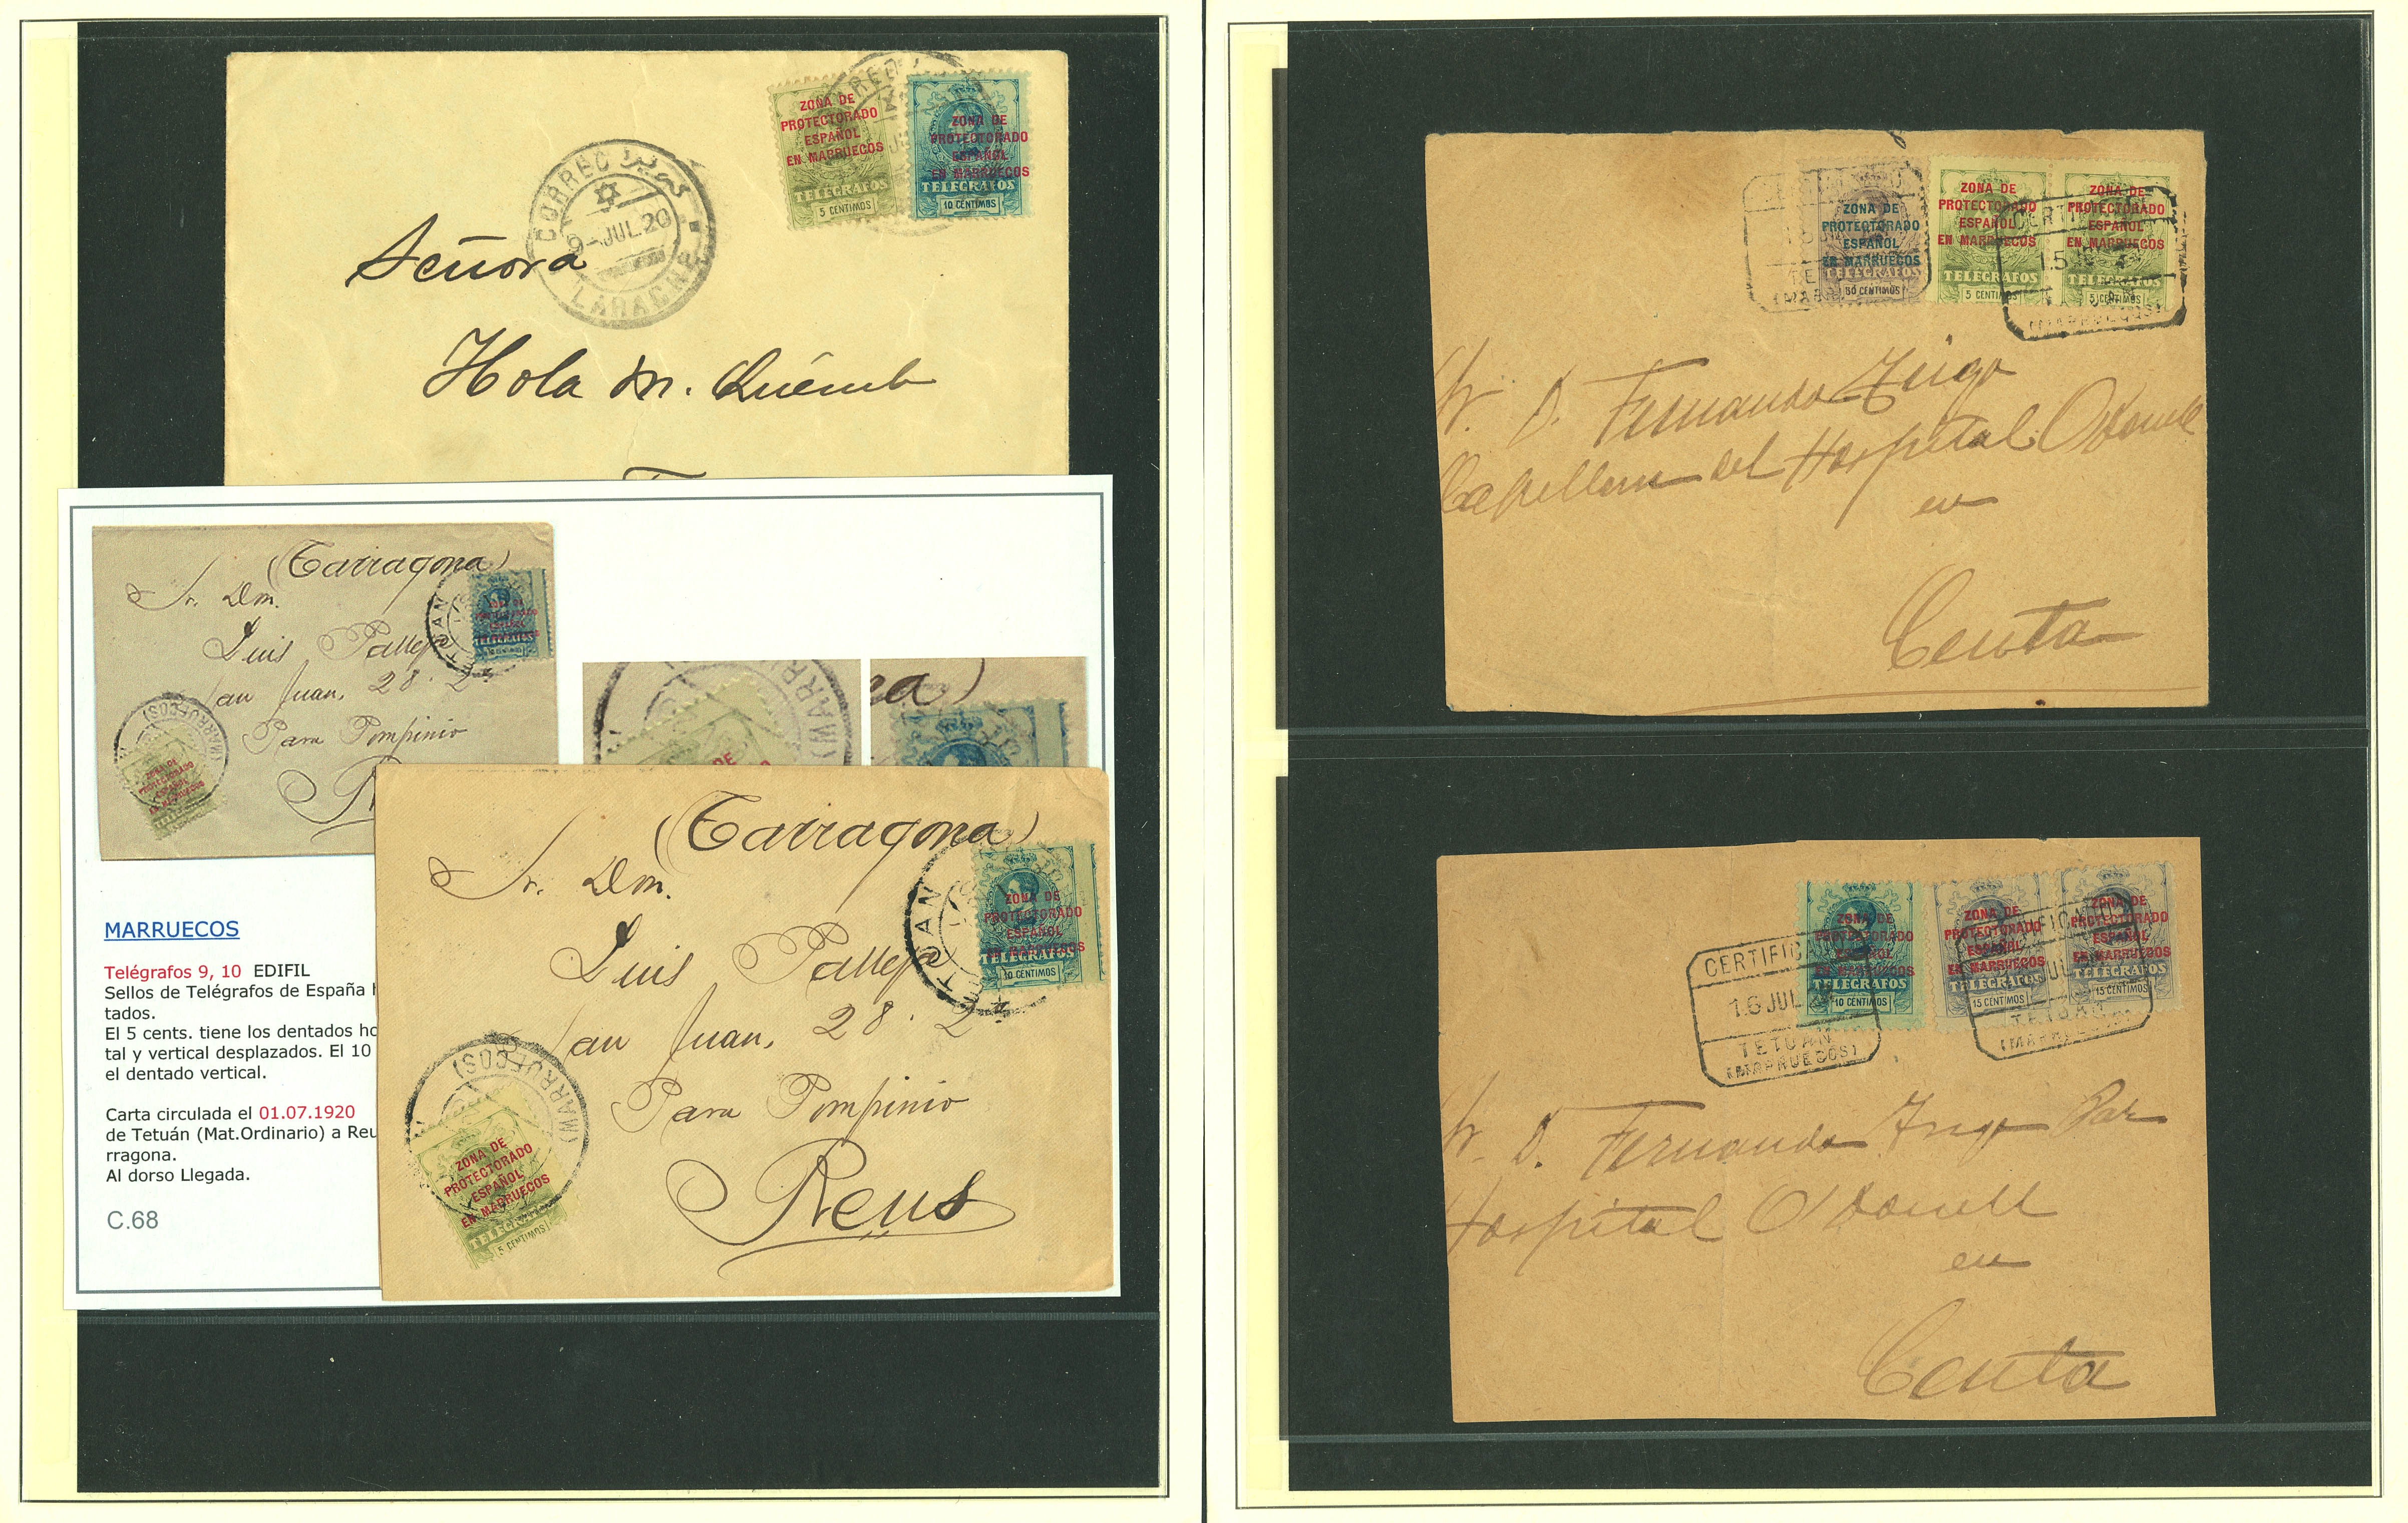 ZONA DE
PROTECTORADO
ESPAÑOL
EN MARRUECOS
TELEGRAFOS
5 CENTIMOS
ZONA DE
PROTECTORADO
ESPAÑOL
EN MARRUECOS
TELEGRAFOS
10 CENTIMOS
CORREO
9-JUL.20
LARACHE
Señora
Hola M.
(Tarragona)
Sr. Dm.
Luis Pallejá
San Juan, 28. 2º
Para Pompinio
(MARRUECOS)
ZONA DE
PROTECTORADO
ESPAÑOL
EN MARRUECOS
TELEGRAFOS
MARRUECOS
Telégrafos 9, 10 EDIFIL
Sellos de Telégrafos de España h
tados.
El 5 cents. tiene los dentados ho
tal y vertical desplazados. El 10
el dentado vertical.
Carta circulada el 01.07.1920
de Tetuán (Mat.Ordinario) a Reu
rragona.
Al dorso Llegada.
C.68
(Tarragona)
Sr. Dm.
Luis Pallejá
San Juan, 28. 2º
Para Pompinio
Reus
TETUAN
ZONA DE
PROTECTORADO
ESPAÑOL
EN MARRUECOS
TELEGRAFOS
10 CENTIMOS
(MARRUECOS)
ZONA DE
PROTECTORADO
ESPAÑOL
EN MARRUECOS
TELEGRAFOS
5 CENTIMOS
ZONA DE
PROTECTORADO
ESPAÑOL
EN MARRUECOS
TELEGRAFOS
ZONA DE
PROTECTORADO
ESPAÑOL
EN MARRUECOS
TELEGRAFOS
5 CENTIMOS
ZONA DE
PROTECTORADO
ESPAÑOL
EN MARRUECOS
TELEGRAFOS
5 CENTIMOS
Sr. D. Fernando
Capellan del Hospital Odonell
en
Ceuta
ZONA DE
PROTECTORADO
ESPAÑOL
EN MARRUECOS
TELEGRAFOS
10 CENTIMOS
ZONA DE
PROTECTORADO
ESPAÑOL
EN MARRUECOS
TELEGRAFOS
15 CENTIMOS
ZONA DE
PROTECTORADO
ESPAÑOL
EN MARRUECOS
TELEGRAFOS
15 CENTIMOS
16 JUL
TETUAN
(MARRUECOS)
TETUAN
Sr. D. Fernando
Hospital O'donell
en
Ceuta